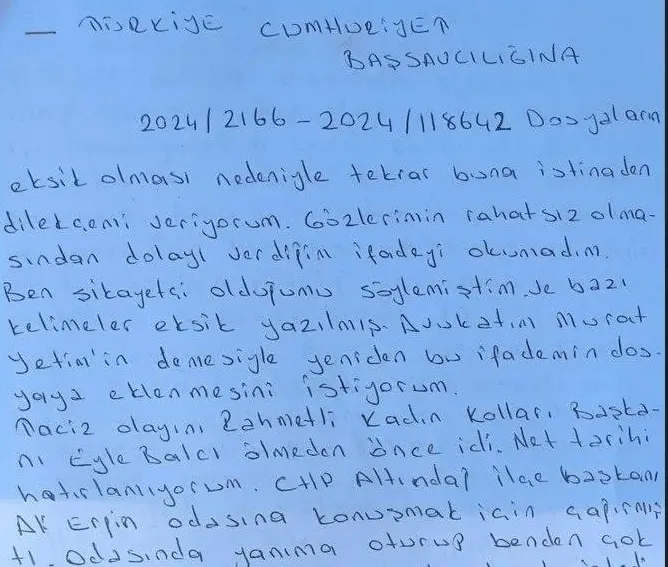 — TÜRKİYE CUMHURİYET
BAŞSAVCILIĞINA
2024/2166 - 2024/118642 Dosyaların
eksik olması nedeniyle tekrar buna istinaden
dilekçemi veriyorum. Gözlerimin rahatsız olma-
sından dolayı verdiğim ifadeyi okumadım.
Ben şikayetçi olduğumu söylemiştim ve bazı
kelimeler eksik yazılmış. Avukatım Murat
Yetim'in demesiyle yeniden bu ifademin dos-
yaya eklenmesini istiyorum.
Taciz olayını Rahmetli Kadın Kolları Başka-
nı Eyle Balcı ölmeden önce idi. Net tarihi
hatırlamıyorum. CHP Altındağ ilçe başkanı
odasına konuşmak için çağırmış
tı. Odasında yanıma oturup benden çok